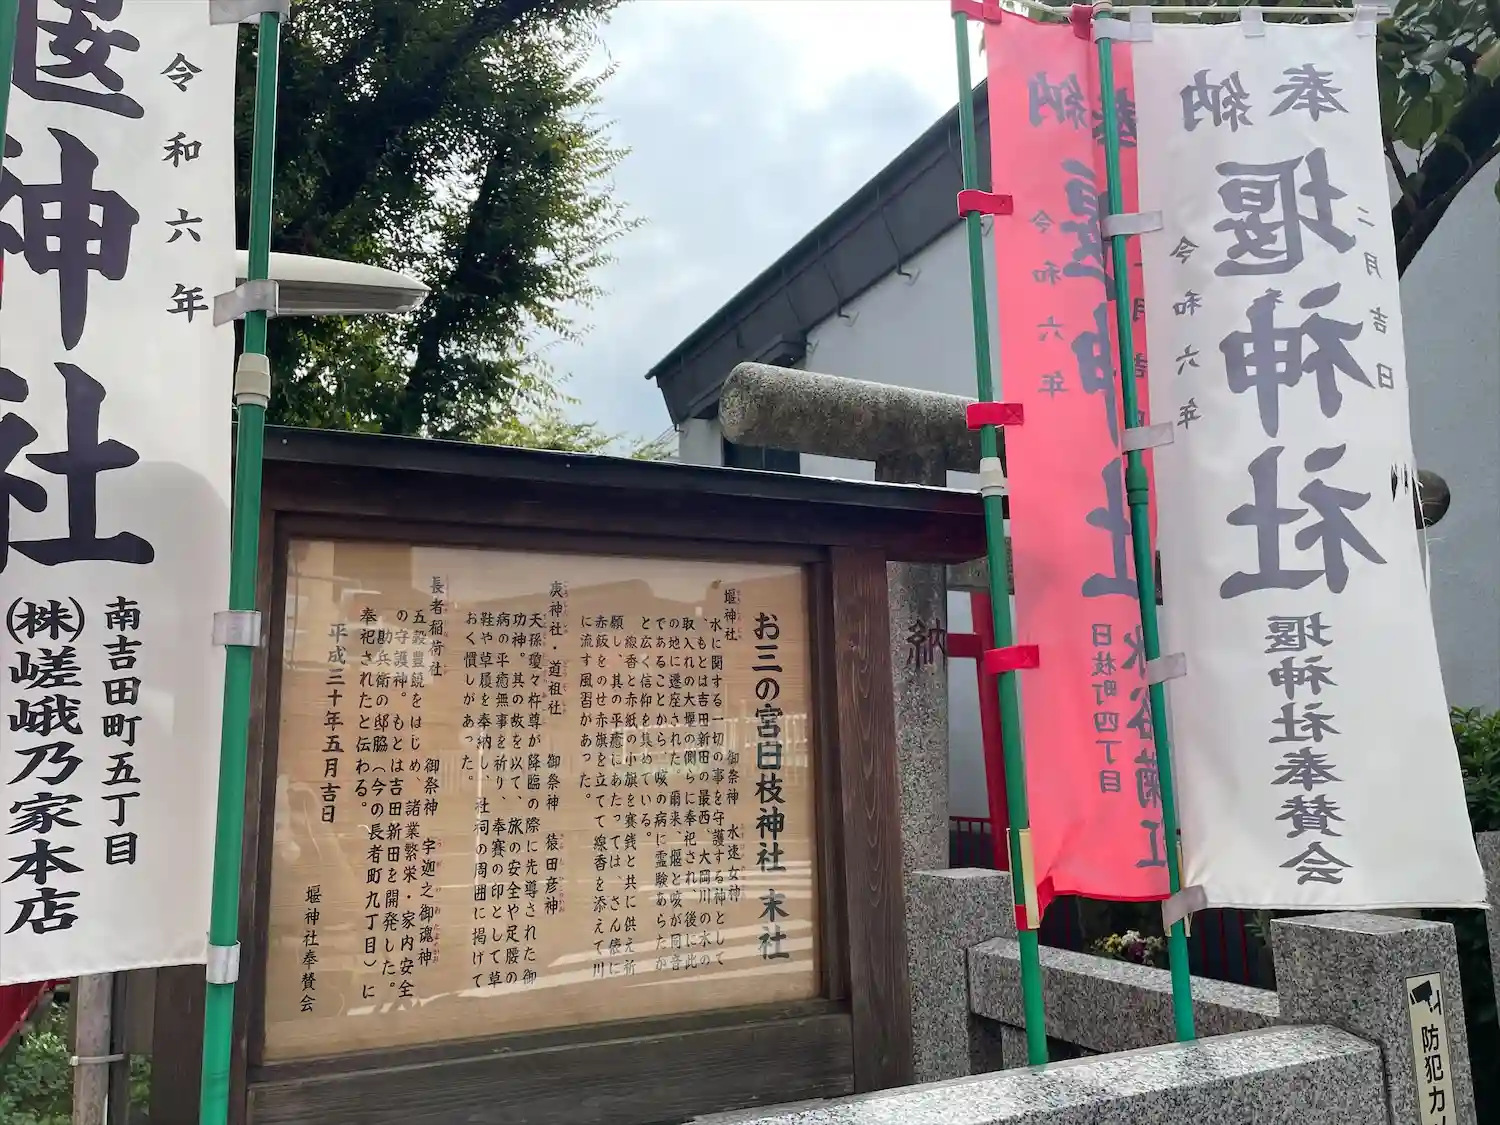 堰神社
令和六年
南吉田町五丁目
㈱嵯峨乃家本店
お三の宮日枝神社 末社
堰神社 御祭神 水速女神
水に関する一切の事を守護する神として
、もとは吉田新田の最西、大岡川の水の
取入れの大堰の側らに奉祀され、後に此
の地に遷座された。爾来、堰と咳が同音
であることから、咳の病に霊験あらたか
と広く信仰を集めている。
線香と赤紙の小旗を賽銭と共に供え祈
願し、其の平癒にあたっては、さん俵に
赤飯をのせ赤旗を立てて線香を添えて川
に流す風習があった。
庚神社・道祖社 御祭神 猿田彦神
天孫瓊々杵尊が降臨の際に先導された御
功神。其の故を以て、旅の安全や足腰の
病の平癒無事を祈り、奉賽の印として草
鞋や草履を奉納し、社祠の周囲に掲げて
おく慣しがあった。
長者稲荷社 御祭神 宇迦之御魂神
五穀豊饒をはじめ、諸業繁栄・家内安全
の守護神。もとは吉田新田を開発した。
勘兵衛の邸脇（今の長者町九丁目）に
奉祀されたと伝わる。
平成三十年五月吉日
堰神社奉賛会
納
奉納
堰神社
令和六年
二月吉日
日枝町四丁目
奉納
堰神社
二月吉日
令和六年
堰神社奉賛会
防犯カメ